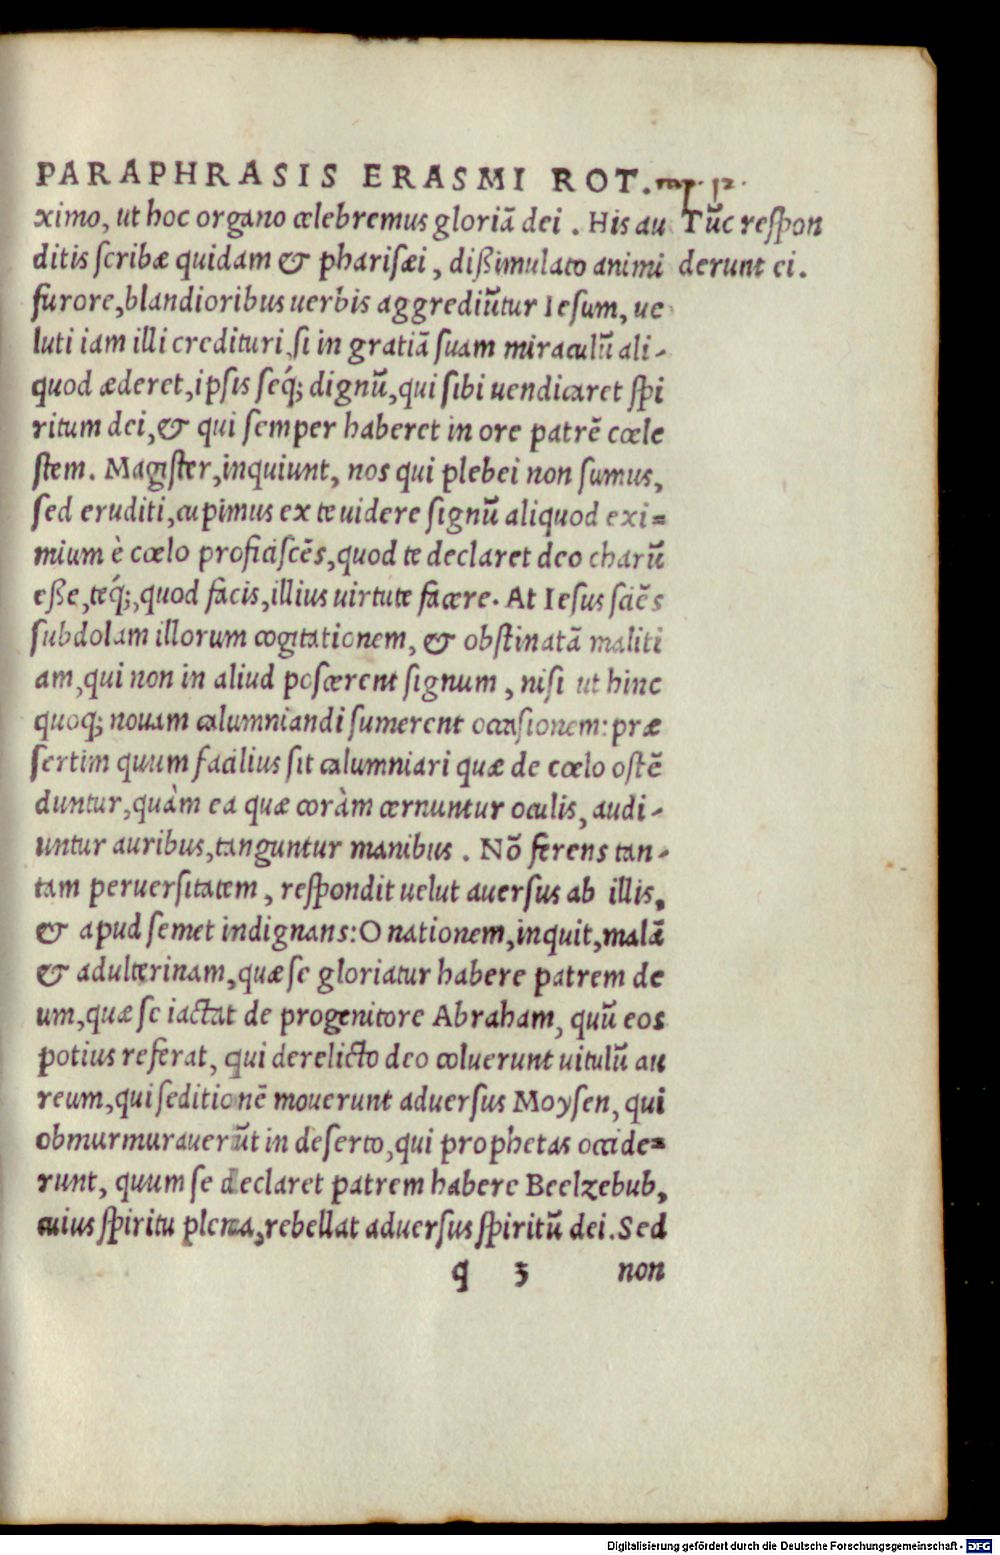 PARAPHRASIS ERASMI ROT.
ximo, ut hoc organo celebremus gloriā dei . His au
Tūc respon
ditis scribæ quidam & pharisæi, dißimulato animi
derunt ei.
furore, blandioribus uerbis aggrediūtur Iesum, ue
luti iam illi credituri, si in gratiā suam miraculū ali-
quod æderet, ipsis seq́; dignū, qui sibi uendicaret spi
ritum dei, & qui semper haberet in ore patrē cœle
stem. Magister, inquiunt, nos qui plebei non sumus,
sed eruditi, cupimus ex te uidere signū aliquod exi=
mium è cœlo proficiscēs, quod te declaret deo charū
eße, teq́;, quod facis, illius uirtute facere. At Iesus sciēs
subdolam illorum cogitationem, & obstinatā maliti
am, qui non in aliud poscerent signum, nisi ut hinc
quoq; nouam calumniandi sumerent occasionem: præ
sertim quum facilius sit calumniari quæ de cœlo ostē
duntur, quàm ea quæ coràm cernuntur oculis, audi-
untur auribus, tanguntur manibus . Nō ferens tan-
tam peruersitatem, respondit uelut auersus ab illis,
& apud semet indignans: O nationem, inquit, malā
& adulterinam, quæ se gloriatur habere patrem de
um, quæ se iactat de progenitore Abraham, quū eos
potius referat, qui derelicto deo coluerunt uitulū au
reum, qui seditionē mouerunt aduersus Moysen, qui
obmurmurauerūt in deserto, qui prophetas occide=
runt, quum se declaret patrem habere Beelzebub,
cuius spiritu plena, rebellat aduersus spiritū dei. Sed
q 3 non
Digitalisierung gefördert durch die Deutsche Forschungsgemeinschaft - DFG